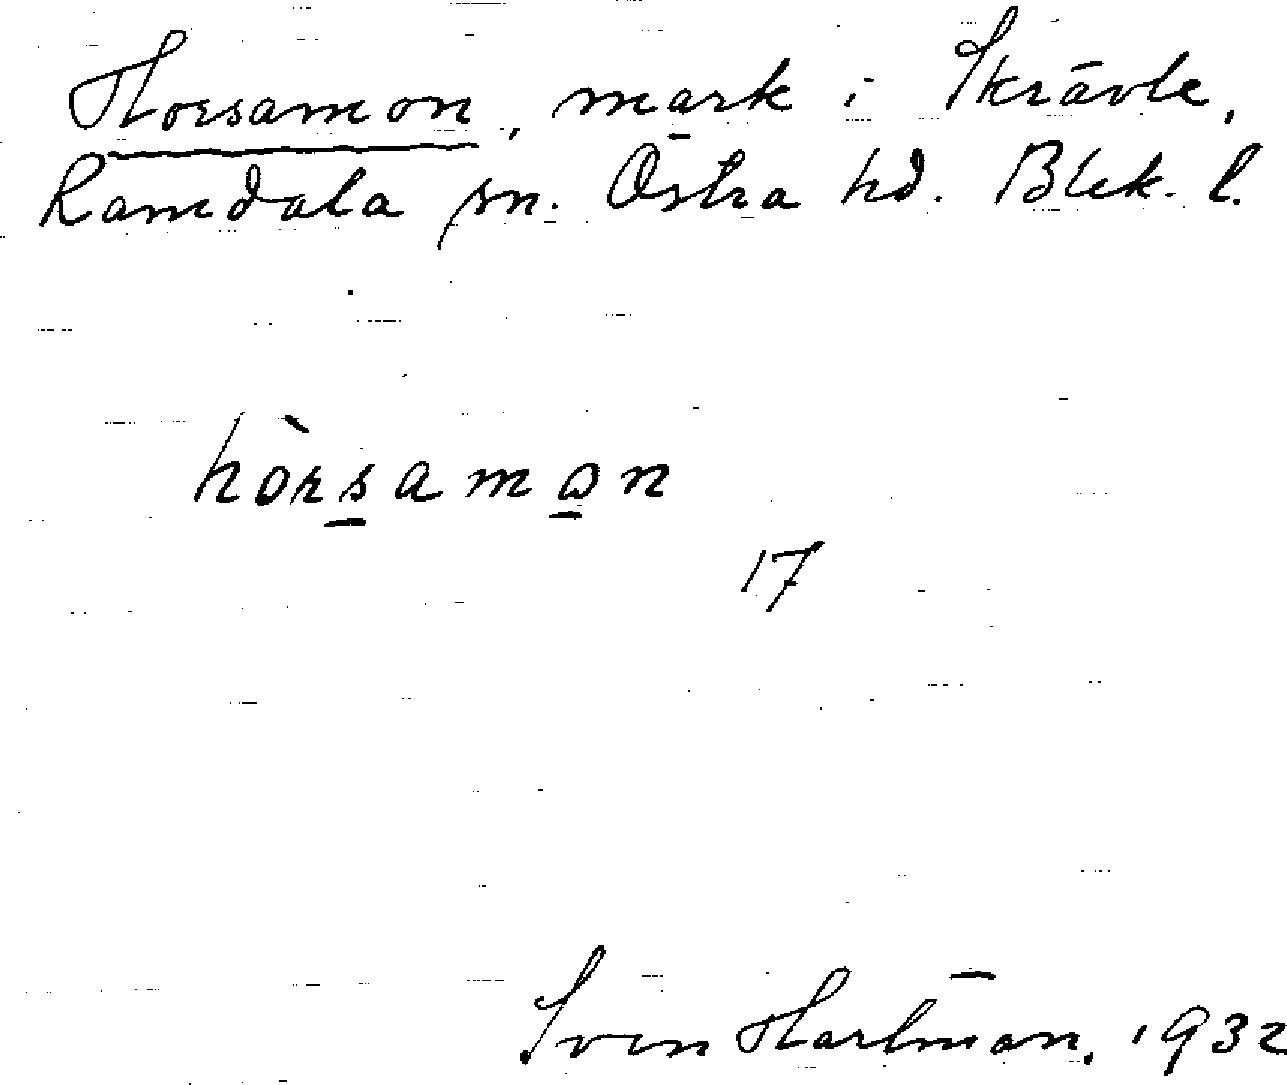 Horsamon, mark i Skrävle,
Ramdala sn. Östra hd. Blek. l.
hòrsamon
17
Sven Hartman. 1932